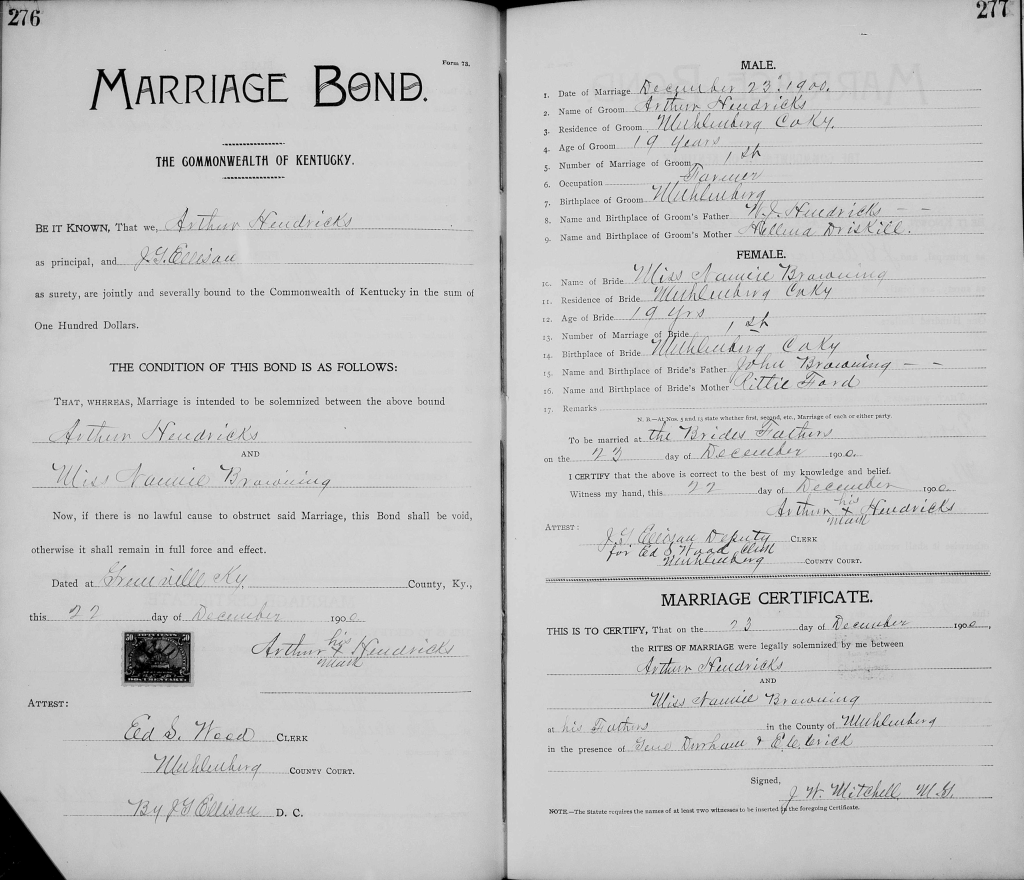 276
Form 75.
MARRIAGE BOND.
THE COMMONWEALTH OF KENTUCKY.
BE IT KNOWN, That we, Arthur Hendricks
as principal, and J. G. Ellison
as surety, are jointly and severally bound to the Commonwealth of Kentucky in the sum of
One Hundred Dollars.
THE CONDITION OF THIS BOND IS AS FOLLOWS:
THAT, WHEREAS, Marriage is intended to be solemnized between the above bound
Arthur Hendricks
AND
Miss Nannie Browning
Now, if there is no lawful cause to obstruct said Marriage, this Bond shall be void,
otherwise it shall remain in full force and effect.
Dated at Greenville Ky. County, Ky.,
this 22 day of December 1900
Arthur his x mark Hendricks
50 FIFTY CENTS 50
DOCUMENTARY
ATTEST:
Ed S. Wood CLERK
Muhlenberg COUNTY COURT.
By J G Ellison D. C.
277
MALE.
1. Date of Marriage December 23" 1900.
2. Name of Groom Arthur Hendricks
3. Residence of Groom Muhlenberg Co Ky.
4. Age of Groom 19 years
5. Number of Marriage of Groom 1st
6. Occupation Farmer
7. Birthplace of Groom Muhlenberg
8. Name and Birthplace of Groom's Father W. J. Hendricks - -
9. Name and Birthplace of Groom's Mother Driskill.
FEMALE.
10. Name of Bride Miss Nannie Browning
11. Residence of Bride Muhlenberg Co Ky
12. Age of Bride 19 yrs
13. Number of Marriage of Bride 1st
14. Birthplace of Bride Muhlenberg Co Ky
15. Name and Birthplace of Bride's Father John Browning - -
16. Name and Birthplace of Bride's Mother Rittie Ford
17. Remarks
N. B.—At Nos. 5 and 13 state whether first, second, etc., Marriage of each or either party.
To be married at the Brides Fathers
on the 23 day of December 1900
I CERTIFY that the above is correct to the best of my knowledge and belief.
Witness my hand, this 22 day of December 1900
Arthur his x mark Hendricks
ATTEST:
J. G. Ellison Deputy CLERK
for Ed S. Wood Clerk
Muhlenberg COUNTY COURT.
MARRIAGE CERTIFICATE.
THIS IS TO CERTIFY, That on the 23 day of December 1900,
the RITES OF MARRIAGE were legally solemnized by me between
Arthur Hendricks
AND
Miss Nannie Browning
at his Fathers in the County of Muhlenberg
in the presence of Durham & E. C.
Signed,
J. W. Mitchell M. G.
NOTE.—The Statute requires the names of at least two witnesses to be inserted in the foregoing Certificate.